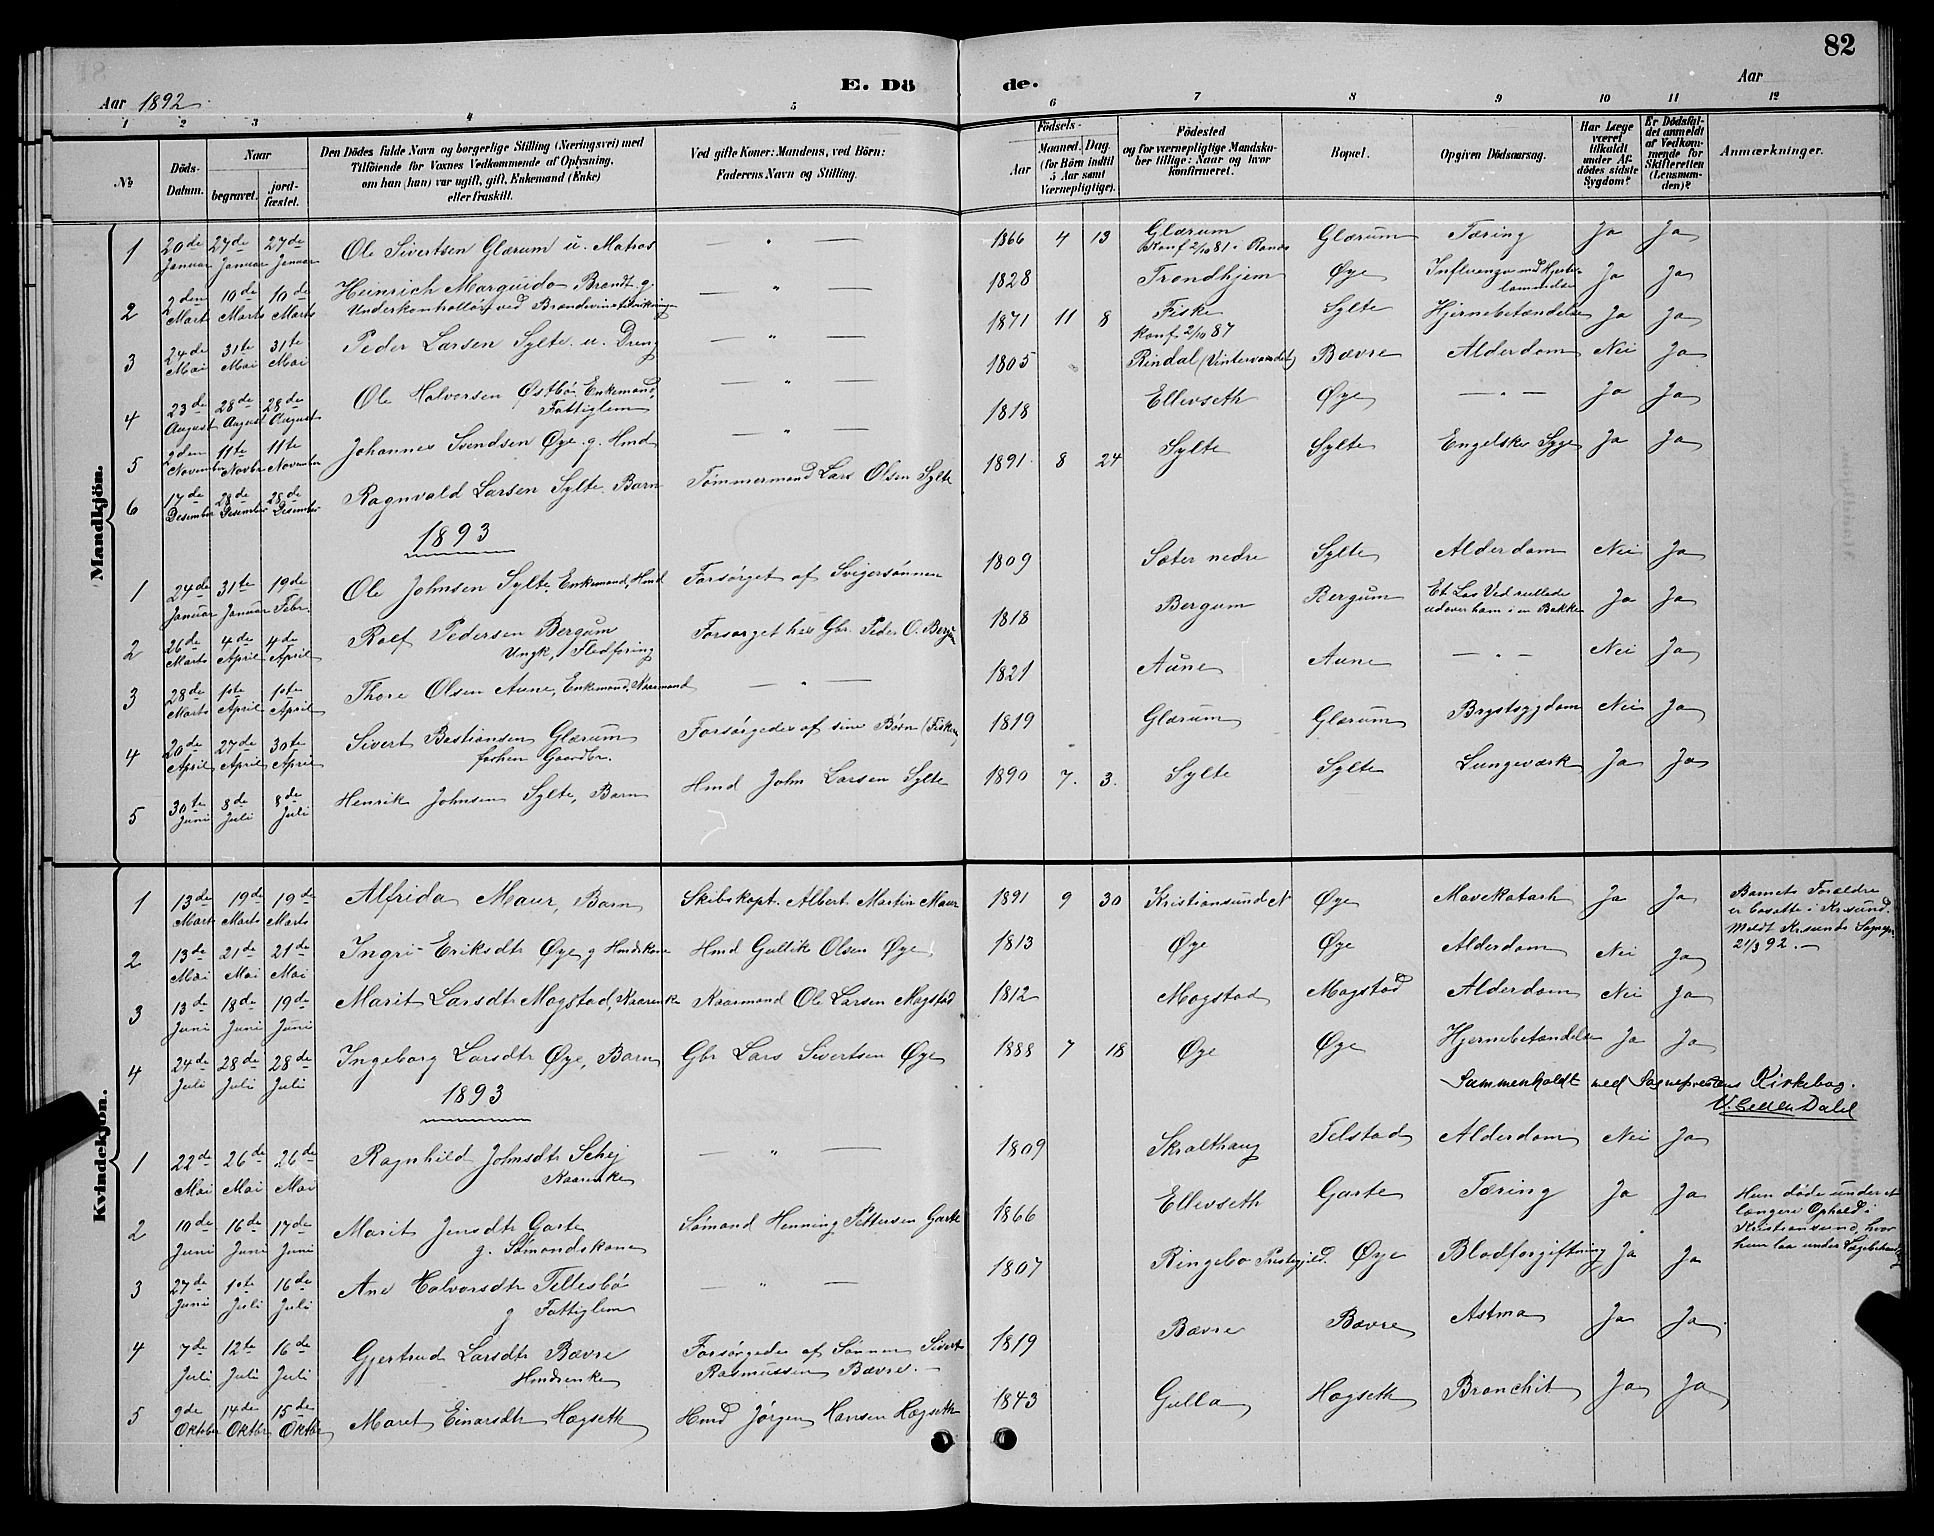 82
Aar 1892
E. Dö
de.
Aar
1 2 3 4 5 6 7 8 9 10 11 12
№
Döds-Datum.
Naar
begravet.
jordfæstet.
Den Dödes fulde Navn og borgerlige Stilling (Næringsvei) med
Tilföiende for Voxnes Vedkommende af Oplysning,
om han (hun) var ugift, gift, Enkemand (Enke)
eller fraskilt.
Ved gifte Koner: Mandens, ved Börn:
Faderens Navn og Stilling.
Födsels-
Aar
Maaned. Dag.
(for Börn indtil
5 Aar samt
Værnepligtige).
Födested
og for værnepligtige Mandskaber tillige: Naar og hvor
konfirmeret.
Bopæl.
Opgiven Dödsaarsag.
Har Læge
været
tilkaldt
under Afdödes sidste
Sygdom?
Er Dödsfaldet anmeldt
af Vedkommende for
Skifteretten
(Lensmanden)?
Anmærkninger.
Mandkjön.
1 20de Januar 27de Januar 27de Januar Ole Sivertsen Glærum u. Matros — " — 1866 4 13 Glærum Konf 2/10 81 i Ranes Glærum Tæring Ja Ja
2 2den Mart 10de Marts 10de Marts Heinrich Marquido Brandt g. Underkontrollör ved Brændevinstilvirkning — " — 1828 Trondhjem Øye Influenza med Hjertelammelse Ja Ja
3 24de Mai 31te Mai 31te Mai Peder Larsen Sylte u. Dreng — " — 1871 11 8 Fiske Konf. 2/10 87 Sylte Hjernebetændelse Ja Ja
4 23de August 28de August 28de August Ole Halvorsen Østbö Enkemand, Fattiglem — " — 1805 Rindal (Vintervandet) Bævre Alderdom Nei Ja
5 2den November 11te Novbr 11te November Johannes Svendsen Øye g. Hmd — " — 1818 Ellevseth Øye — " — Ja Ja
6 17de Desember 28de Desember 28de Desember Ragnvald Larsen Sylte. Barn Tömmermand Lars Olsen Sylte 1891 8 24 Sylte Sylte Engelske Syge Ja Ja
1893
1 24de Januar 31te Januar 19de Febr. Ole Johnsen Sylte, Enkemand, Hmd Forsörget af Svigersönnen 1809 Sæter nedre Sylte Alderdom Nei Ja
2 26de Marts 4de April 4de April Rolf Pedersen Bergum Ungk, Flodföring Forsørget hos Gbr. Peder O. Bergum 1818 Bergum Bergum Et Las Ved rullede udover ham i en Bakke Ja Ja
3 28de Marts 1ste April 1ste April Thore Olsen Aune, Enkemand, Kaarmand — " — 1821 Aune Aune — " — Nei Ja
4 20de April 27de April 30te April Sivert Bastiansen Glærum forhen Gaardbr. Forsörgedes af sine Börn (Fisken) 1819 Glærum Glærum Brystsygdom Nei Ja
5 30te Juni 8de Juli 8de Juli Henrik Johnsen Sylte, Barn Hmd John Larsen Sylte 1890 7. 3. Sylte Sylte Lungeværk Ja Ja
Kvindekjön.
1 13de Mart 19de Marts 19de Marts Alfrida Maur, Barn Skibskapt. Albert Martin Maur 1891 9 30 Kristiansund N Øye Mavekatarh Ja Ja Barnets Forældre er bosatte i Kr.sund. Meldt Kr.sunds Sognepr. 21/3 92. —
2 13de Mai 21de Mai 21de Mai Ingri Eriksdtr Øye, g Hmdskone Hmd Gullik Olsen Øye 1813 Øye Øye Alderdom Nei Ja
3 13de Juni 18de Juni 19de Juni Marit Larsdtr Mogstad, Kaarenke Kaarmand Ole Larsen Mogstad 1812 Mogstad Mogstad Alderdom Nei Ja
4 24de Juli 28de Juli 28de Juli Ingeborg Larsdtr Øye, Barn Gbr Lars Sivertsen Øye 1888 7 18 Øye Øye Hjernebetændelse Ja Ja
Sammenholdt med Sognepresten's Kirkebog.
1893
1 22de Mai 26de Mai 26de Mai Ragnhild Johnsdtr Schej Kaarenke — " — 1809 Skralthaug Telstad Alderdom Nei Ja
2 10de Juni 16de Juni 17de Juni Marit Jensdtr Garte g. Sömandskone Sömand Henning Pettersen Garte 1866 Ellevseth Garte Tæring Ja Ja Hun döde under et længere Ophold i Kristiansund, hvor hun laa under Lægebehandlg
3 27de Juni 1ste Juli 16de Juli Ane Halvorsdtr Tellesbö g Fattiglem — " — 1807 Ringebo Prestegjeld. Øye Blodforgiftning Ja Ja
4 7de Juli 12te Juli 16de Juli Gjertrud Larsdtr Bævre Hmdsenke Forsörgedes af Sönnen Sivert Rasmussen Bævre. — 1819 Bævre Bævre Astma Ja Ja
5 9de Oktober 14de Oktbr 15de Oktbr Maret Einarsdtr Hogseth Hmd Jørgen Hansen Hogseth 1843 Gulla Hogseth Bronchit Ja Ja